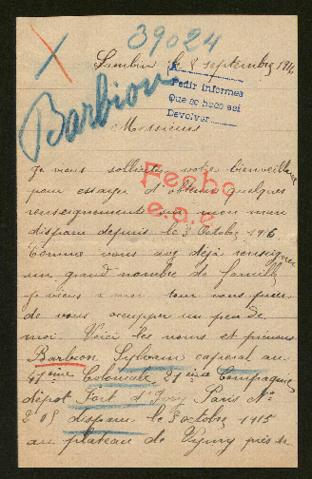 39024
Lambin le 8 septembre 191
Pedir informes
Que se hace asi
Devolver
Barbion
Messieurs
Je vous sollicite votre bienveillance
pour essayer d'obtenir quelques
Fecho
renseignements sur mon mari
e.a.e
disparu depuis le 3 Octobre 1915
Comme vous avez déjà renseigné
un grand nombre de famille
je viens à mon tour vous prier
de vous occupper un peu de
moi. Voici les noms et prénoms
Barbion Sylvain caporal au
ième Coloniale 21 ième Compagnie
dépot Fort d'Ivry Paris No
205 disparu le 3 octobre 1915
au plateau de Vigny près